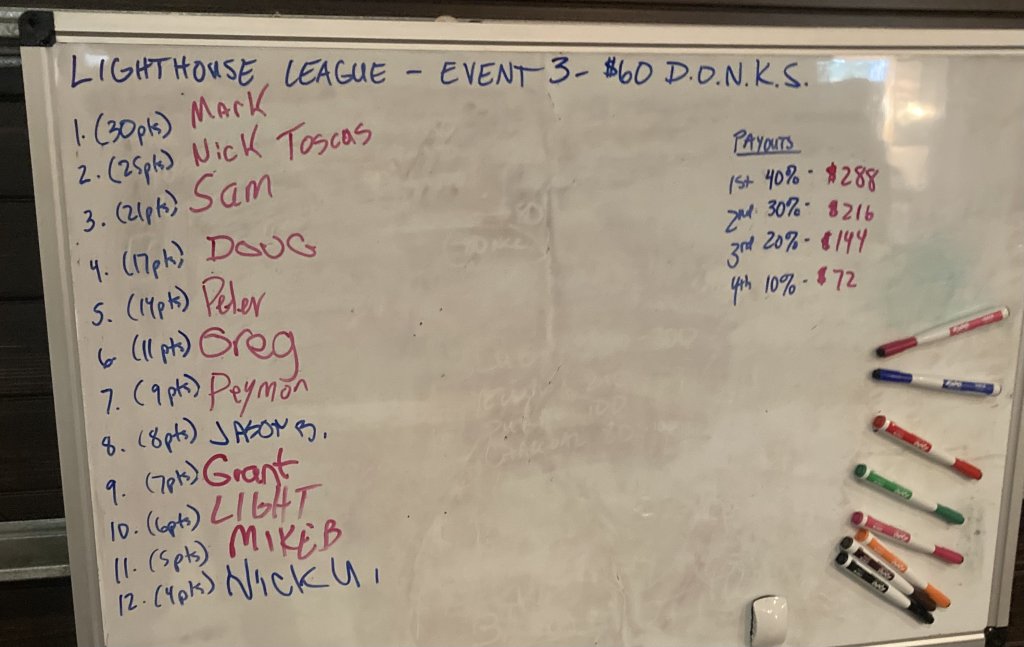 LIGHTHOUSE LEAGUE - EVENT 3 - $60 D.O.N.K.S.
1. (30pts) Mark
2. (25pts) Nick Toscas
3. (21pts) Sam
4. (17pts) DOUG
5. (14pts) Peter
6 (11pts) Greg
7. (9pts) Peymon
8. (8pts) JASON B.
9. (7pts) Grant
10. (6pts) LIGHT
11. (5pts) MIKE B
12. (4pts) NICK U.
PAYOUTS
1st 40% - $288
2nd 30% - $216
3rd 20% - $144
4th 10% - $72